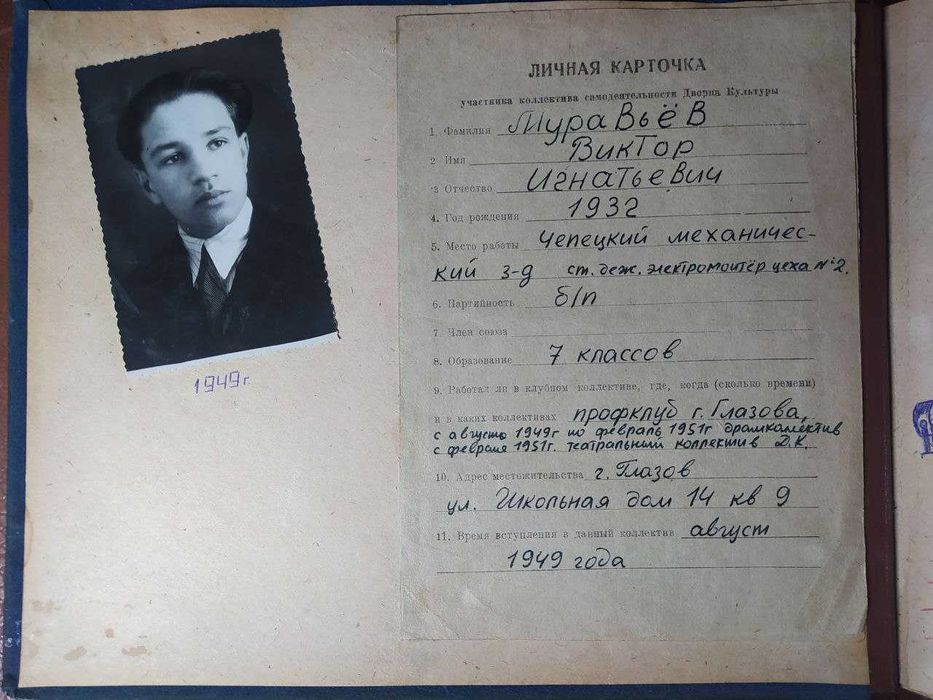 1949 г.
ЛИЧНАЯ КАРТОЧКА
участника коллектива самодеятельности Дворца Культуры
1. Фамилия Муравьёв
2 Имя Виктор
3 Отчество Игнатьевич
4. Год рождения 1932
5. Место работы Чепецкий механичес-
кий з-д ст. деж. электромонтёр цеха №2.
6. Партийность б/п
7. Член союза
8. Образование 7 классов
9. Работал ли в клубном коллективе, где, когда (сколько времени)
и в каких коллективах профклуб г. Глазова,
с август 1949г по февраль 1951г драмколлектив
с февраля 1951г. театральный коллектив Д.К.
10. Адрес местожительства г. Глазов
ул. Школьная дом 14 кв 9
11. Время вступления в данный коллектив август
1949 года